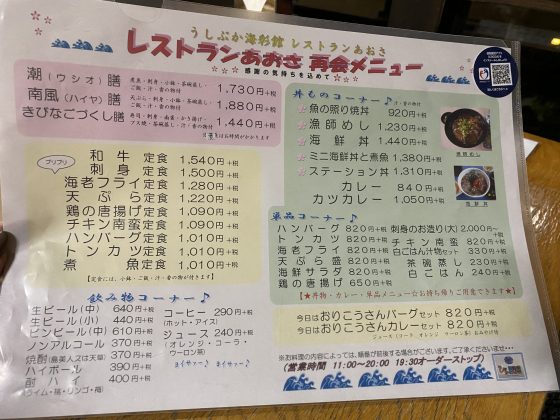 うしぶか海彩館 レストランあおさ
レストランあおさ 再会メニュー
☆感謝の気持ちを込めて☆
潮(ウシオ)膳 煮魚・刺身・小鉢・茶碗蒸し・ご飯・汁・香の物付 1,730円+税
南風(ハイヤ)膳 天ぷら・刺身・小鉢・茶碗蒸し・ご飯・汁・香の物付 1,880円+税
きびなごづくし膳 1,440円+税
プリプリ
和牛定食 1,540円+税
刺身定食 1,500円+税
海老フライ定食 1,280円+税
天ぷら定食 1,220円+税
鶏の唐揚げ定食 1,090円+税
チキン南蛮定食 1,090円+税
ハンバーグ定食 1,010円+税
トンカツ定食 1,010円+税
煮魚定食 1,010円+税
【定食には、小鉢・ご飯・汁・香の物が付きます】
飲み物コーナー♪
生ビール(中) 640円+税
生ビール(小) 440円+税
ビンビール(中) 610円+税
ノンアルコール 370円+税
焼酎(島美人又は天草) 370円+税
ハイボール 390円+税
酎ハイ 400円+税
(ライム・苺・リンゴ・梅)
コーヒー 290円+税
(ホット・アイス)
ジュース 240円+税
(オレンジ・コーラ・
ウーロン茶)
丼ものコーナー♪ 汁・香の物付
☆魚の照り焼丼 920円+税
☆漁師めし 1,230円+税
☆海鮮丼 1,440円+税
☆ミニ海鮮丼と煮魚 1,380円+税
☆ステーション丼 1,310円+税
カレー 840円+税
カツカレー 1,050円+税
漁師めし
海鮮丼
単品コーナー♪
ハンバーグ 820円+税 刺身のお造り(大) 2,000円~+税
トンカツ 820円+税 チキン南蛮 820円+税
海老フライ 820円+税 白ごはん汁物セット 330円+税
天ぷら盛 820円+税 茶碗蒸し 230円+税
海鮮サラダ 820円+税 白ごはん 240円+税
鶏の唐揚げ 650円+税
【★丼物・カレー・単品メニュー☆お持ち帰りご用意できます★】
今日はおりこうさんバーグセット 820円+税
今日はおりこうさんカレーセット 820円+税
ジュース(リンゴ・オレンジ・ウーロン茶)おみやげ付
※お料理の内容によっては、順番が前後する場合がございます。ご了承くださいませ…
(営業時間 11:00~20:00 19:30オーダーストップ)